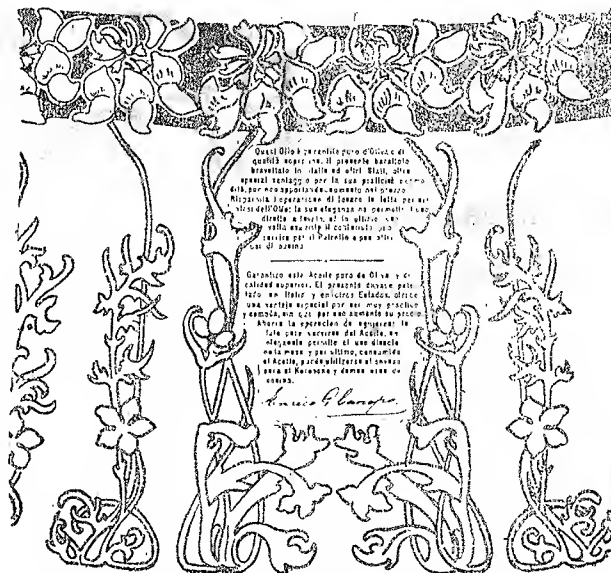 Quest Olio è garantito puro d'Oliva e di
qualità superiore. Il presente barattolo
brevettato in Italia ed altri Stati, offre
special vantaggio per la sua
dità, pur non apportando aumento nel prezzo
Risparmia l'operazione di forare la latta per
dell'Olio; la sua eleganza ne permette l'uso
diretto a tavola, ed in ultimo,
volta esaurito il contenuto
servire per il Petrolio e per altri
usi di cucina
Garantico este Aceite puro de Oliva y de
calidad superior. El presente envase paten
tado en Italia y en otros Estados, ofrece
una ventaja especial por ser muy práctico
y cómodo, sin que por eso aumente su precio
Ahorra la operación de agujerear la
lata para servirse del Aceite, su
elegancia permite el uso directo
en la mesa y por ultimo, consumido
el Aceite, puede utilizarse el envase
para el Kerosene y demas usos de
cocina.
Enrico G. Canepa